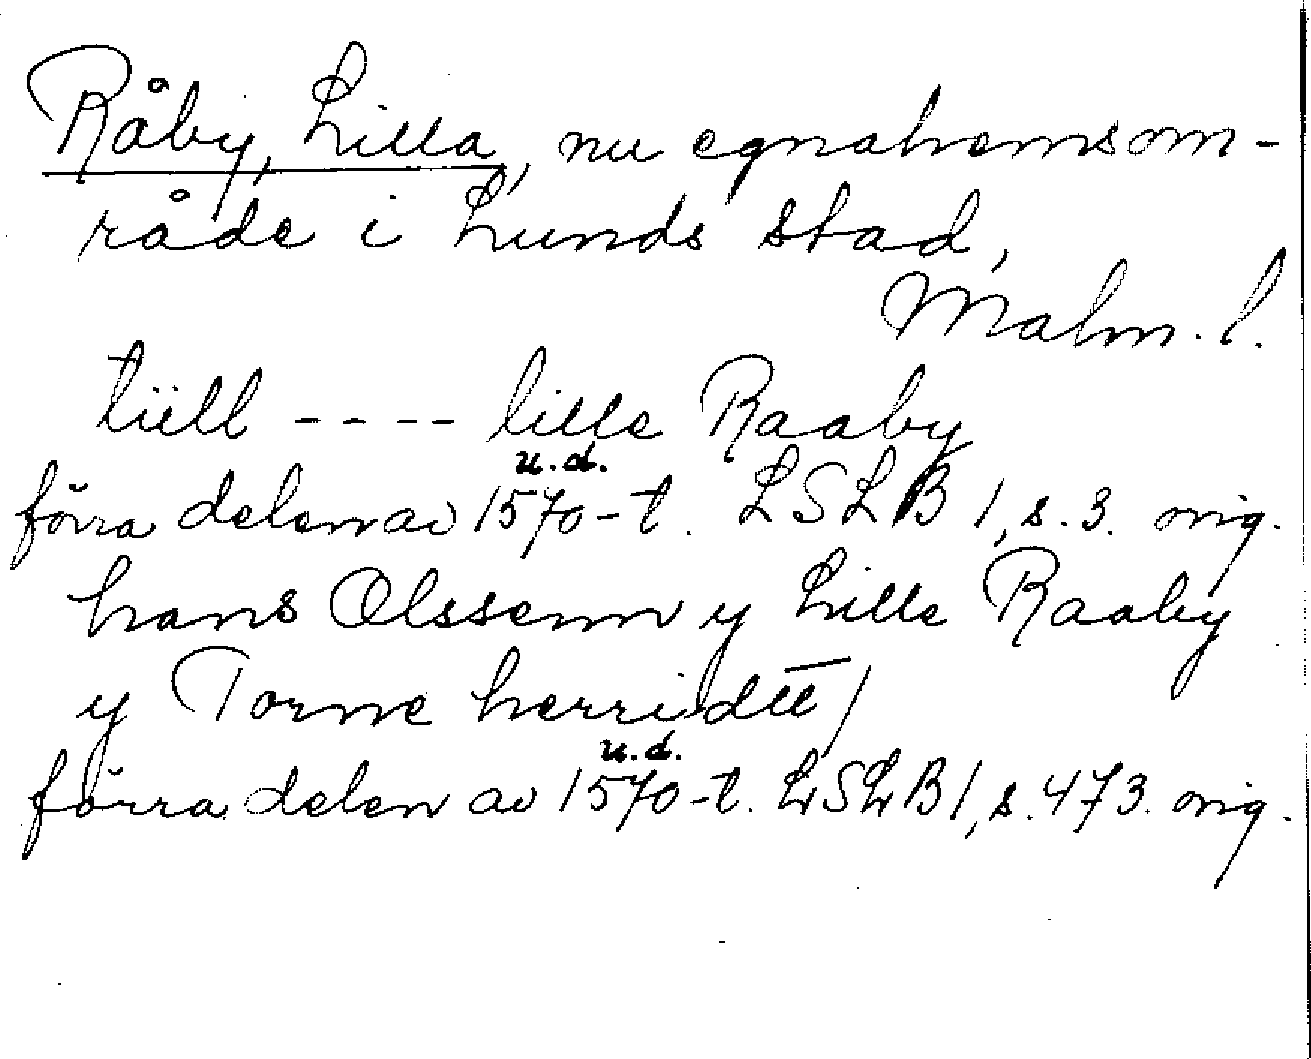 Råby, Lilla, nu egnahemsom-
råde i Lunds stad,
Malm. l.
tiill - - - - lille Raaby
u. d.
förra delen av 1570-t. LSLB 1, s. 3. orig.
hans Olssenn y Lille Raaby
y Torne herridtt /
u. d.
förra delen av 1570-t. LSLB 1, s. 473. orig.